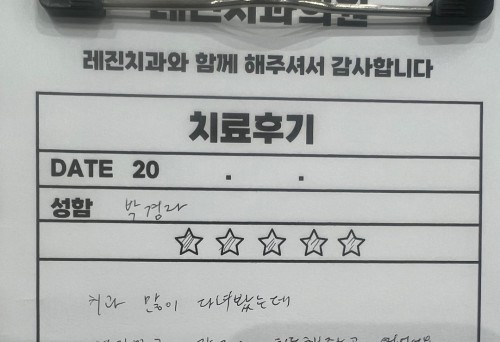 레진치과의원
레진치과와 함께 해주셔서 감사합니다
치료후기
DATE 20 . .
성함 박경라
치과 많이 다녀봤는데